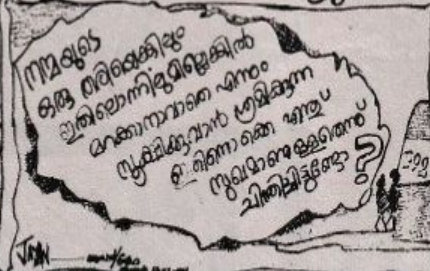 നന്മയുടെ
ഒരു തരിയെങ്കിലും
ഇതിലൊന്നിലുമില്ലെങ്കിൽ
മറക്കാനാവാതെ എന്നും
സൂക്ഷിക്കുവാൻ ശ്രമിക്കുന്ന
ഇതിനൊക്കെ എന്ത്
സുഖമാണുള്ളതെന്ന്
ചിന്തിച്ചിട്ടുണ്ടോ?